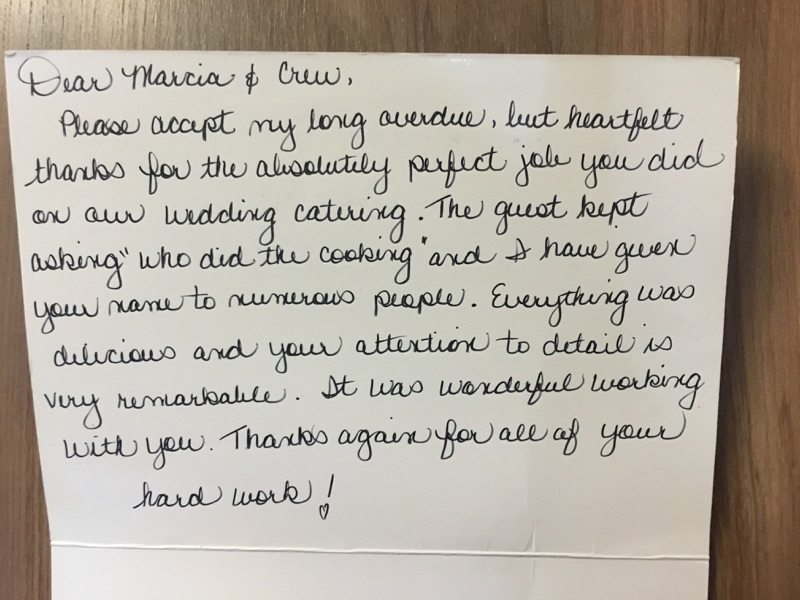 Dear Marcia & Crew,
Please accept my long overdue, but heartfelt
thanks for the absolutely perfect job you did
on our wedding catering. The guest kept
asking "who did the cooking" and I have given
your name to numerous people. Everything was
delicious and your attention to detail is
very remarkable. It was wonderful working
with you. Thanks again for all of your
hard work!